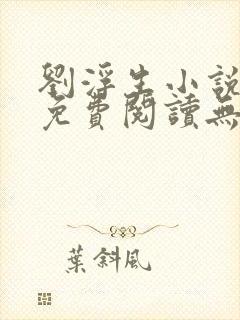 劉浮生小說
免費閱讀無
葉斜風